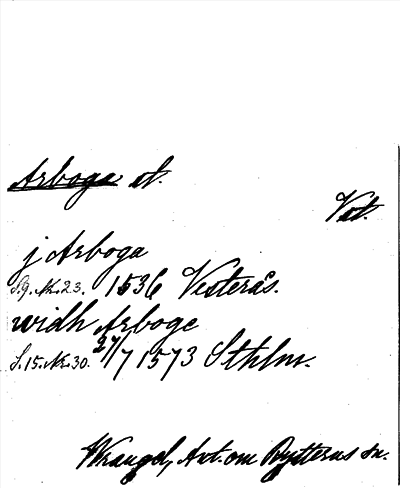 Arboga st.
Vat.
j Arboga
S.9. Nr. 23. 1536 Vesterås.
widh Arboge
S.15. Nr. 30. 27/7 1573 Sthlm.
Wrangel, Ant. om Rytterns sn.